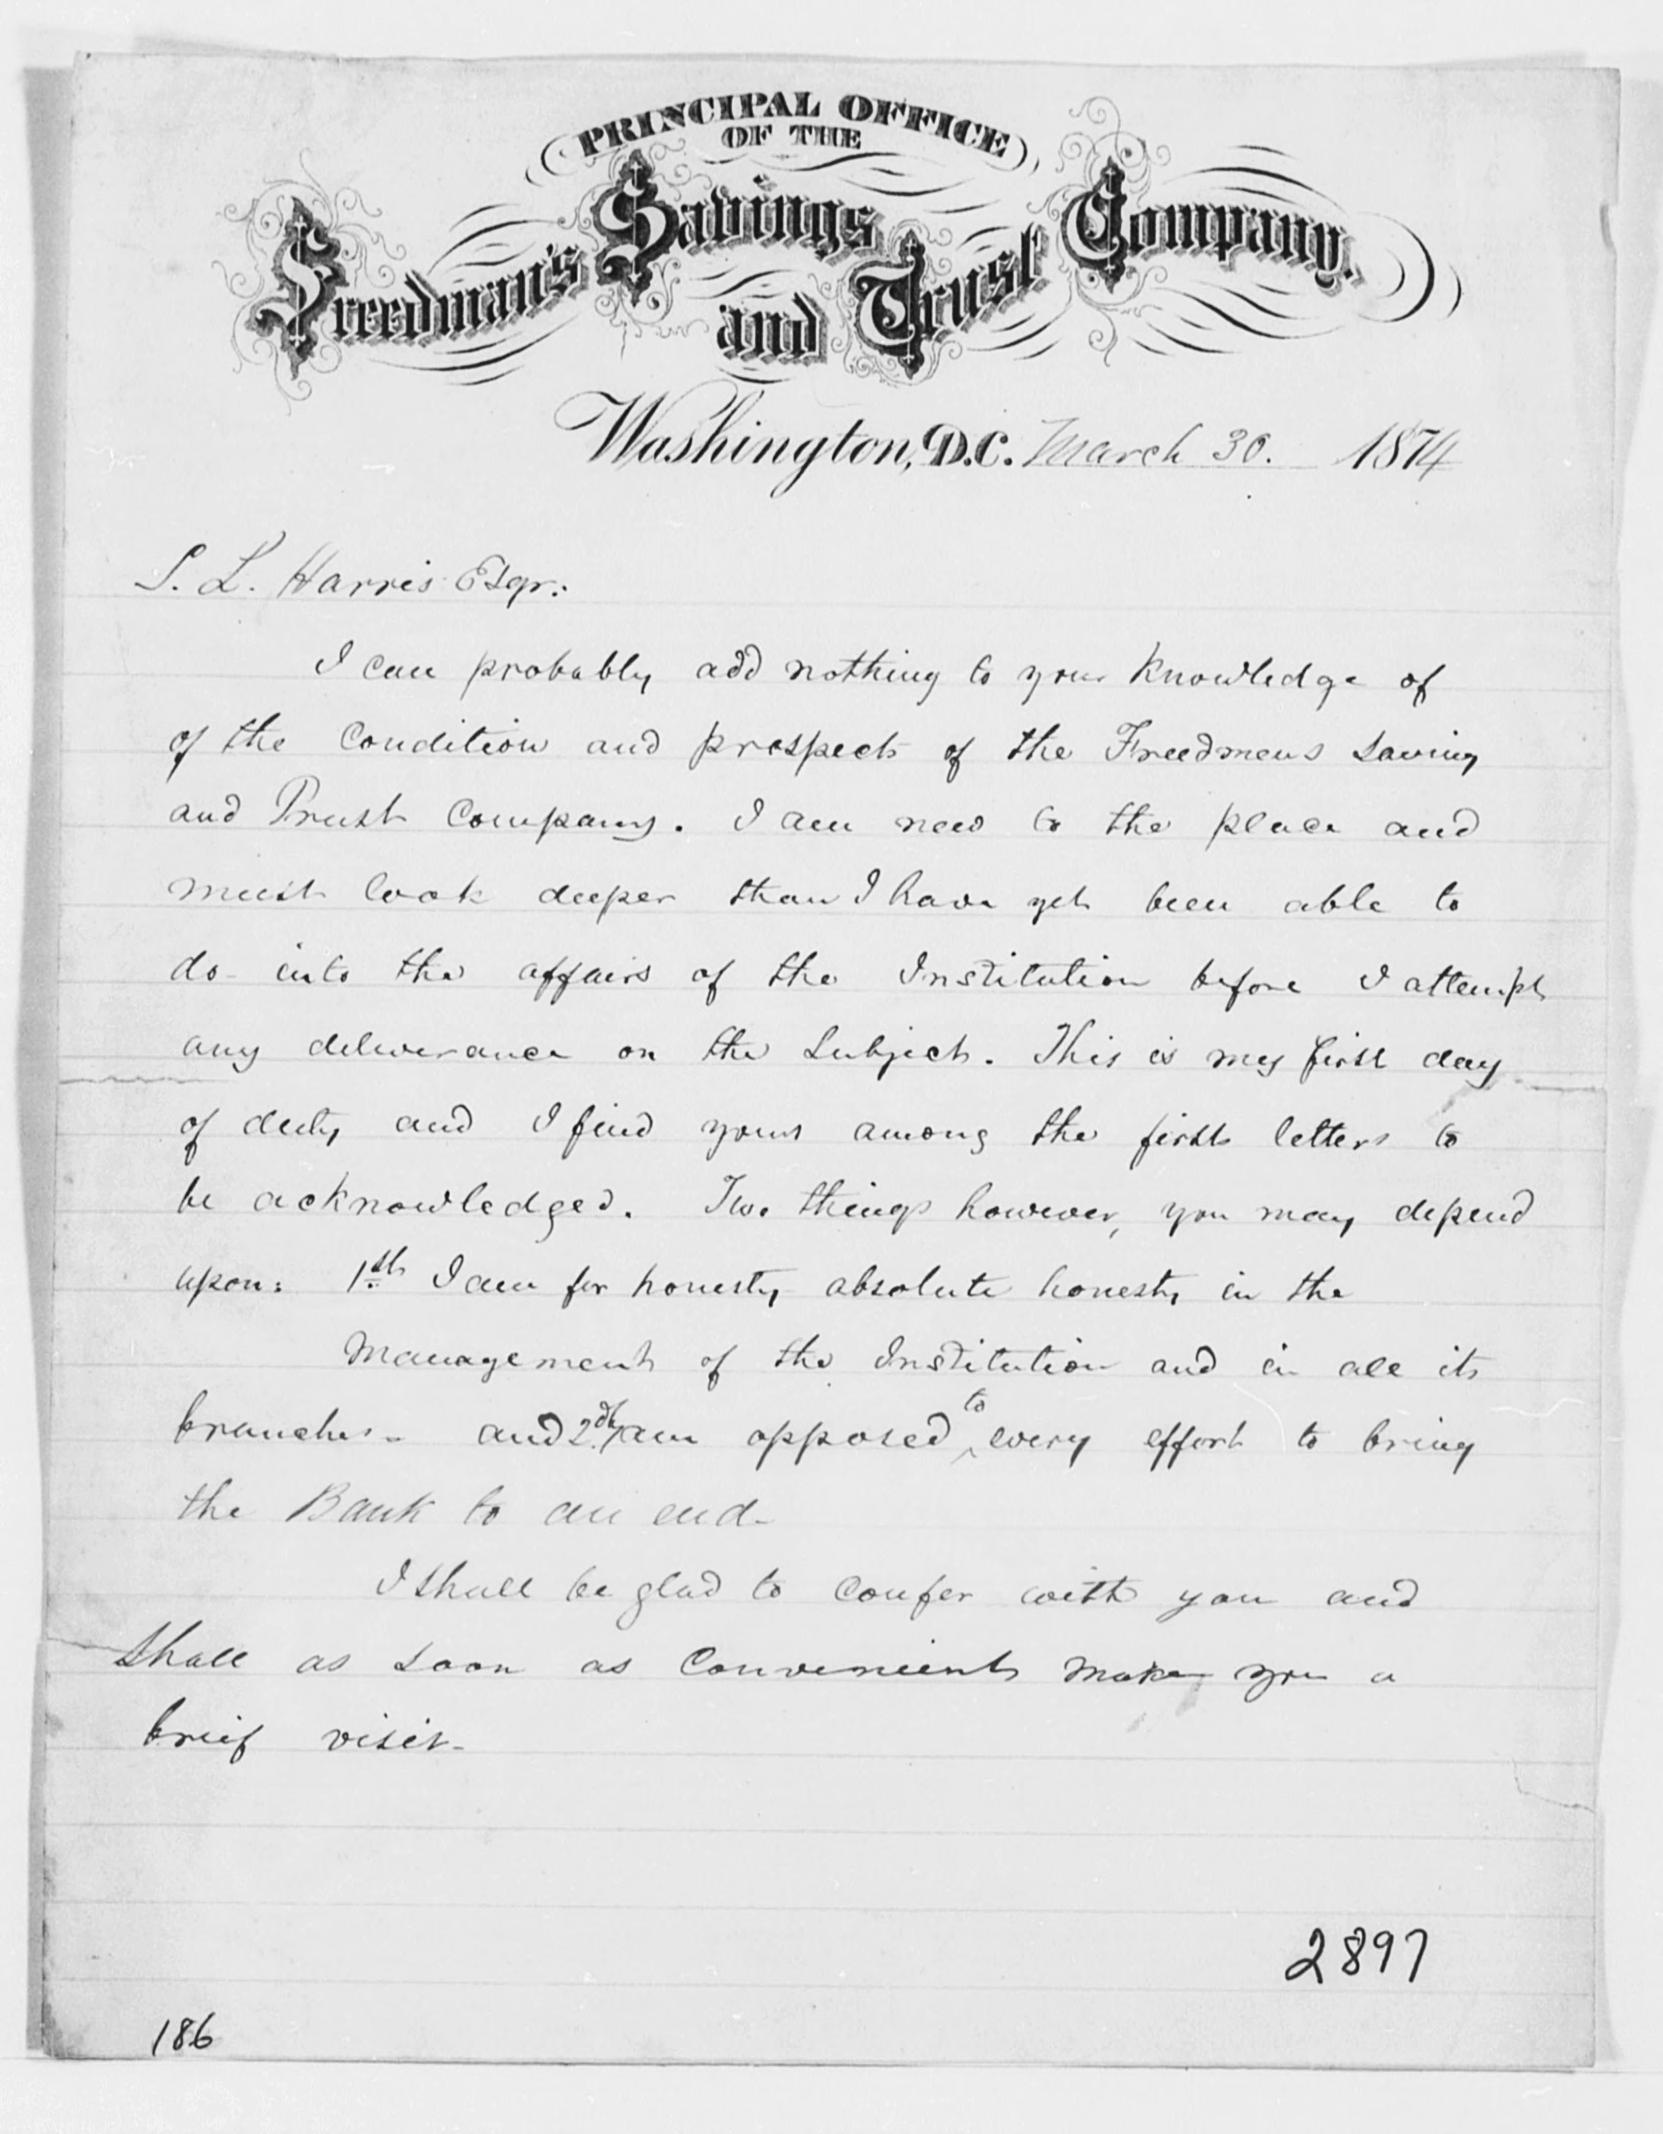 PRINCIPAL OFFICE
OF THE
Freedman's Savings and Trust Company.
Washington, D.C. March 30. 1874
S. L. Harris Esqr.
I can probably add nothing to your Knowledge of
of the Condition and prospects of the Freedmens Saving
and Trust Company. I am new to the place and
must look deeper than I have yet been able to
do into the affairs of the Institution before I attempt
any deliverance on the Subject. This is my first day
of duty and I find yours among the first letters to
be acknowledged. Two things however, you may depend
upon: 1st I am for honesty, absolute honesty in the
Management of the Institution and in all its
branches- and 2d I am opposed to every effort to bring
the Bank to an end-
I shall be glad to Confer with you and
shall as soon as Convenient make you a
brief visit-
2897
186